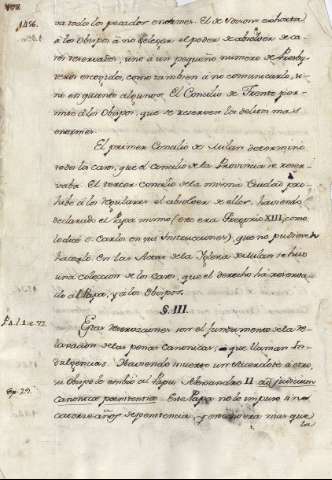 1486.
va todo los pecados enormes. El de Voron exhorta
à los Obispos à no delegar el poder de absolver de ca-
sos reservados, sino à un pequeño numero de Presby-
teros escogidos, como tambien à no comunicarlo, si-
no en quanto algunos. El Concilio de Trento per-
mite à los Obispos, que se reserven los delitos mas
enormes.
El primer Concilio de Milan determinó
todos los casos, que el Concilio de la Provincia se reser-
vaba. El tercer Concilio de la misma Ciudad pro-
hibe à los Regulares el absolver de ellos, haviendo
declarado el Papa mismo (este era Gregorio XIII, como
lo dice S. Carlos en sus Instrucciones), que no pudiesen
hacerlo. En las Actas de la Iglesia de Milan se hizo
una coleccion de los casos, que el derecho ha reserva-
do al Papa, y à los Obispos.
§. III.
Estas reservaciones son el fundamento de la de-
claracion de las penas Canonicas, que llaman In-
dulgencias. Haviendo muerto un Sacerdote à otro,
su Obispo lo embió al Papa Alexandro II ad judicium
canonicae poenitentiae. Este Papa no le impuso sino
catorce años de penitencia, y